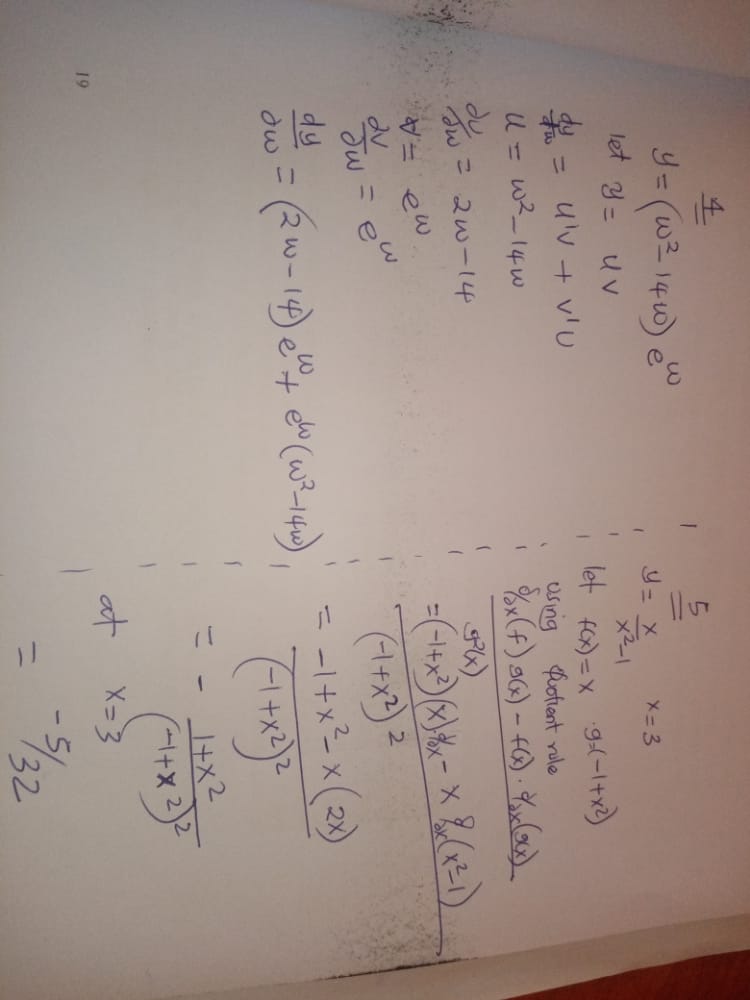 4
y = (w² - 14w) e^w
let y = uv
dy/dw = u'v + v'u
u = w² - 14w
du/dw = 2w - 14
v = e^w
dv/dw = e^w
dy/dw = (2w - 14) e^w + e^w (w² - 14w)
19
5
y = x/(x² - 1) x = 3
let f(x) = x · g = (-1 + x²)
using Quotient rule
d/dx (f) g(x) - f(x) · d/dx (g(x))
g²(x)
= (-1 + x²)(x) d/dx - x d/dx (x² - 1)
(-1 + x²)²
= -1 + x² - x (2x)
(-1 + x²)²
= - 1 + x²
(-1 + x²)²
at x = 3
= -5/32